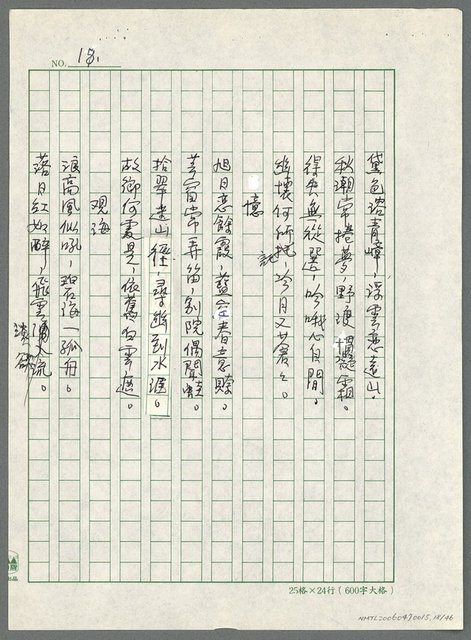 NO. 18.
黛色潑青嶂,浮雲意遠山。
秋潮常捲夢,野渡慣凝霜。
得失無從選,吟哦心自閒。
幽懷何所托,吟月又荖茗。
憶
旭日意餘霞,蒼空春意賒。
芸窗常弄笛,別院偶聞
拾翠遠山徑,尋幽到水涯。
故鄉何處是,依舊白雲遮。
觀海
浪高風似吼,碧海一孤舟。
落日紅如醉,飛雲湧入流。
25格×24行(600字大格)
NMTL20060430015, 18/46